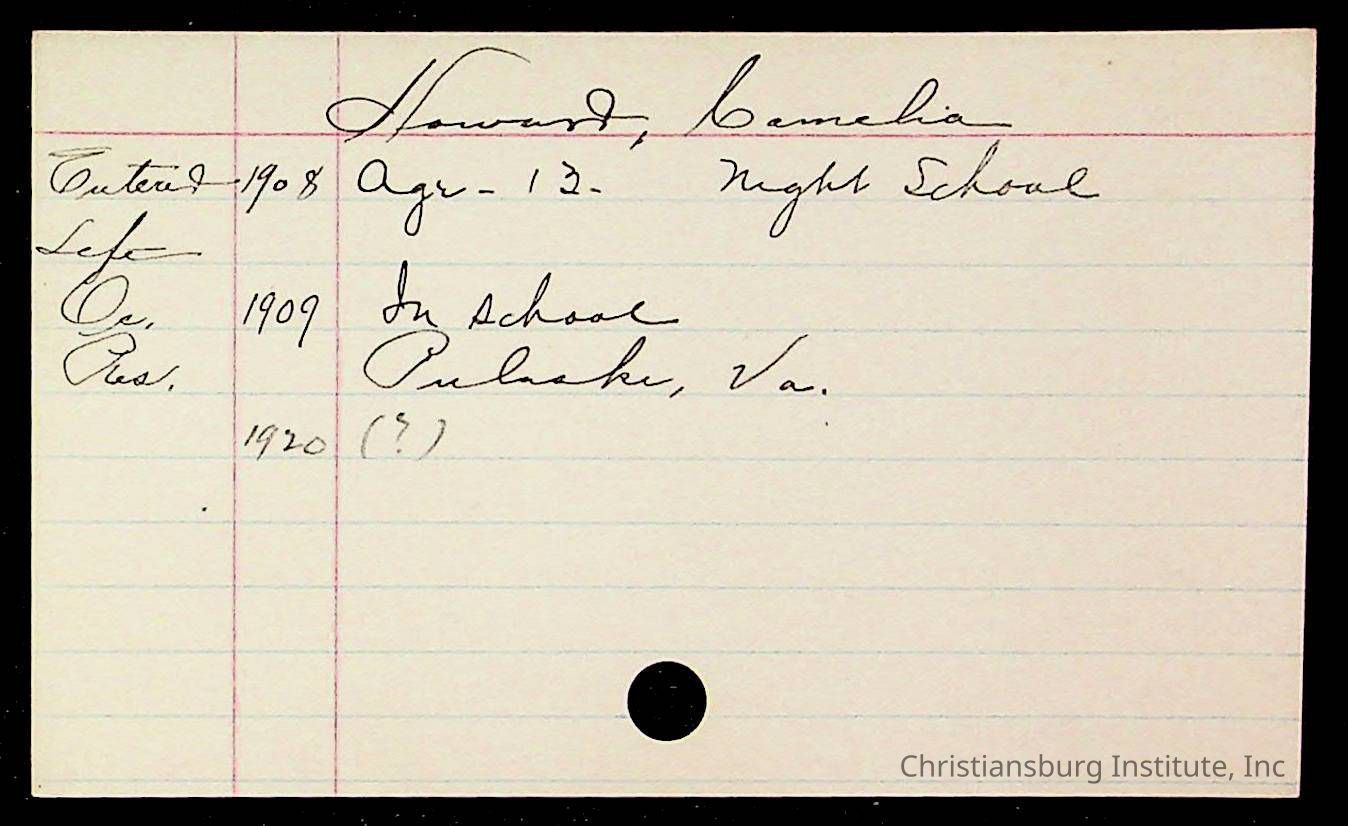 Howard, Camelia
Entered 1908 Age - 13. Night School
Left
Oc. 1909 In school
Res. Pulaski, Va.
1920 (?)
Christiansburg Institute, Inc